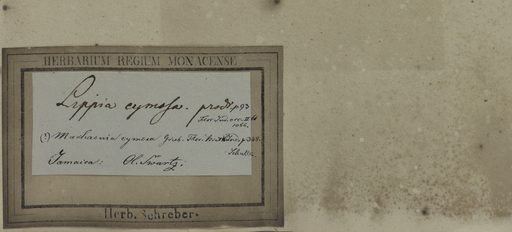 HERBARIUM REGIUM MONACENSE
Lippia cymosa. prodr. p 93
Flor. Ind. occ. II
1066.
(?) Machaenia cymosa Griseb. Flor. Br. W. Ind. p.
Jamaica: Ol. Swartz.
Herb. Schreber.